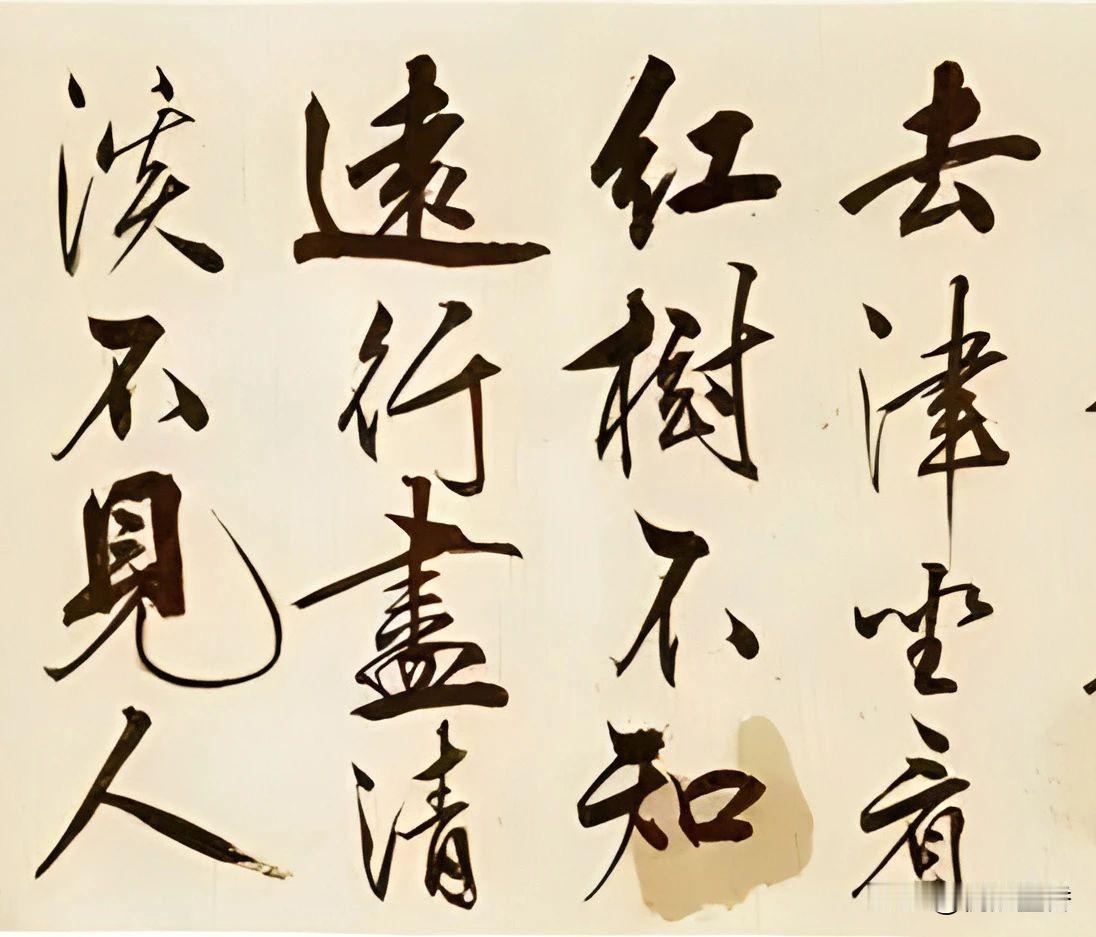 去津坐看
紅樹不知
遠行盡清
溪不見人